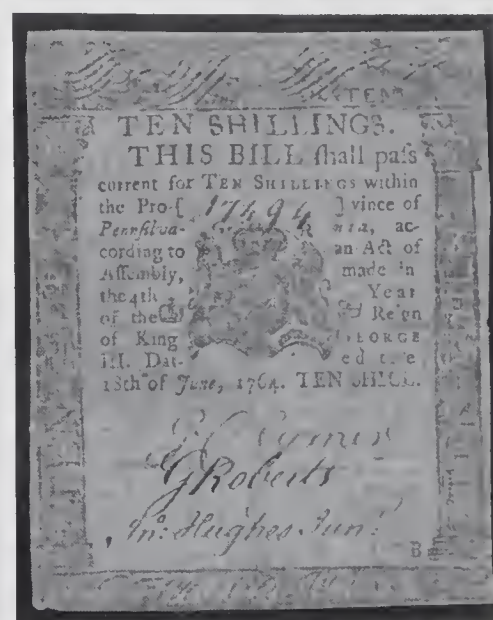 TEN
TEN SHILLINGS.
THIS BILL ſhall paſs
current for TEN SHILLINGS within
the Pro-{ 17494 } vince of
Pennſilva- nia, ac-
cording to an Act of
Aſſembly, made in
the 4th Year
of the Reign
of King GEORGE
III. Dat- ed the
18th of June, 1764. TEN SHILL.
G Roberts
Jno. Hughes Junr.
B